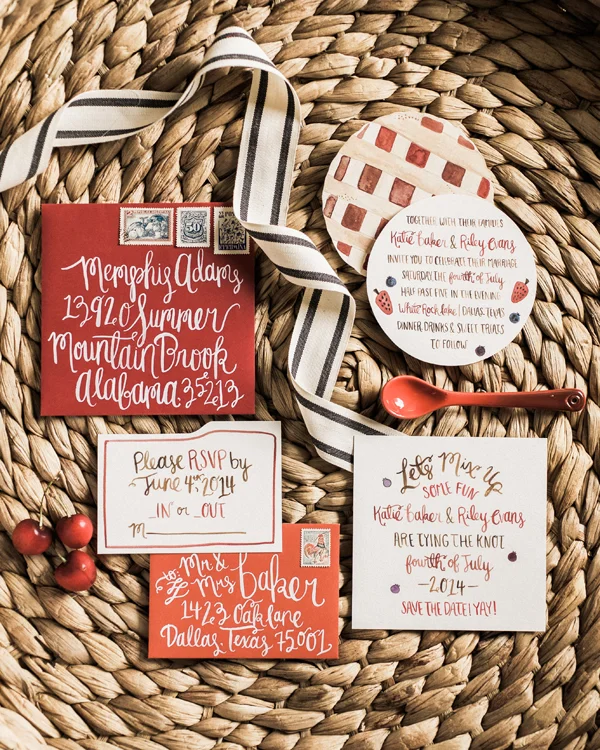 Memphis Adams
1392 Summer
Mountain Brook
Alabama. 35213
TOGETHER WITH THEIR FAMILIES
Katie Baker & Riley Evans
INVITE YOU TO CELEBRATE THEIR MARRIAGE
SATURDAY, THE fourth of July
HALF PAST FIVE IN THE EVENING
White Rock Lake | DALLAS, TEXAS
DINNER, DRINKS & SWEET TREATS
TO FOLLOW
Please RSVP by
June 4th, 2014
_IN or _OUT
M
Mr &
Mrs Baker
1423 Oak lane
Dallas, Texas 75001
Let's Mix Up
SOME FUN
Katie Baker & Riley Evans
ARE TYING THE KNOT
fourth of July
-2014-
SAVE THE DATE! YAY!